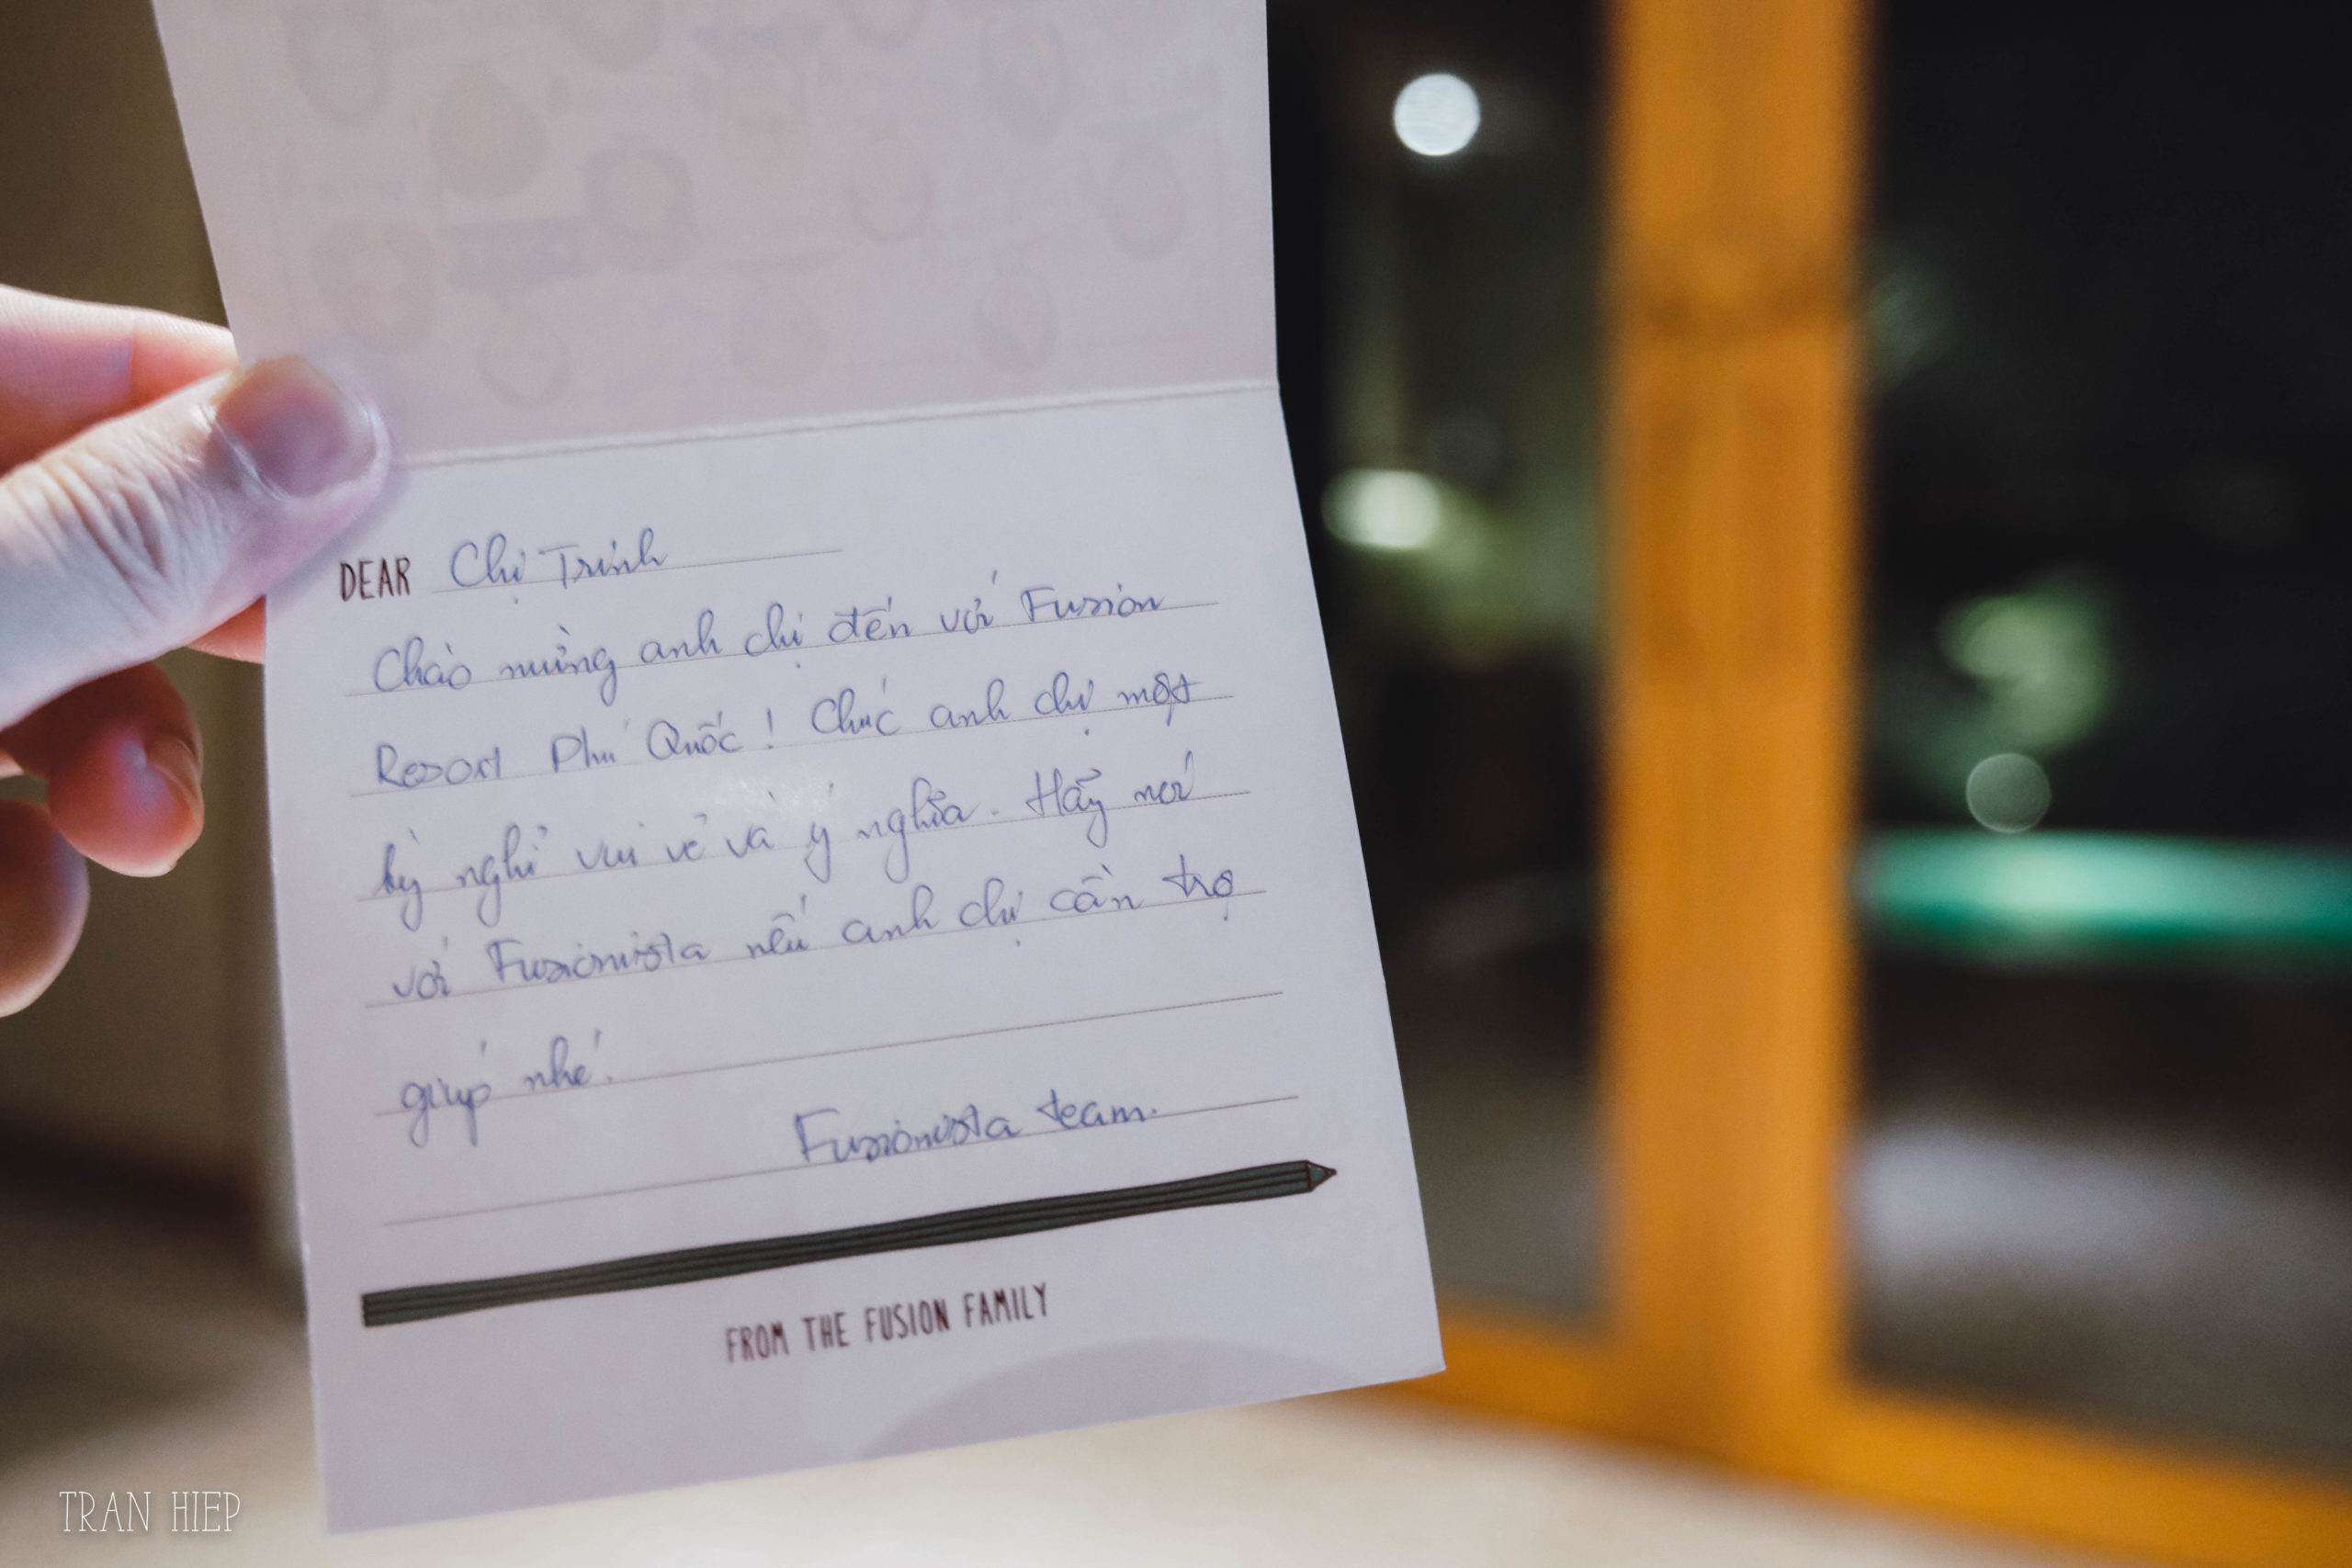 DEAR Chị Trinh
Chào mừng anh chị đến với Fusion
Resort Phú Quốc! Chúc anh chị một
kỳ nghỉ vui vẻ và ý nghĩa. Hãy nói
với Fusionista nếu anh chị cần trợ
giúp nhé!
Fusionista team.
FROM THE FUSION FAMILY
TRAN HIEP